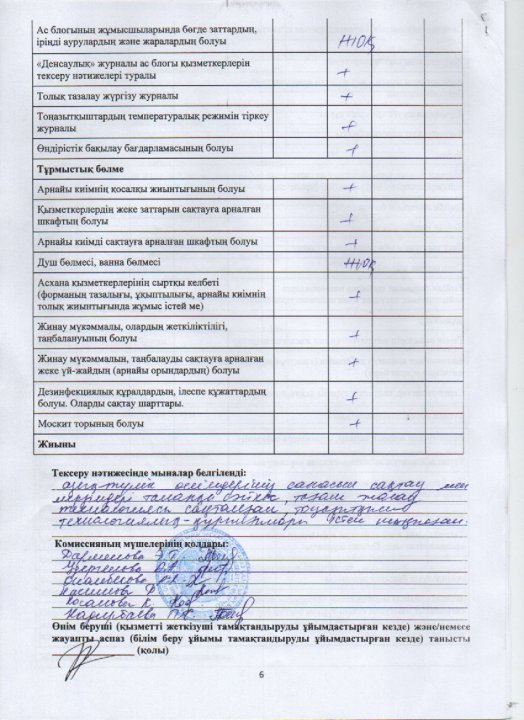 Ас блогының жұмысшыларында бөгде заттардың,
іріңді аурулардың және жаралардың болуы жоқ
«Денсаулық» журналы ас блогы қызметкерлерін
тексеру нәтижелері туралы +
Толық тазалау жүргізу журналы +
Тоңазытқыштардың температуралық режимін тіркеу
журналы +
Өндірістік бақылау бағдарламасының болуы +
Тұрмыстық бөлме
Арнайы киімнің қосалқы жиынтығының болуы +
Қызметкерлердің жеке заттарын сақтауға арналған
шкафтың болуы +
Арнайы киімді сақтауға арналған шкафтың болуы +
Душ бөлмесі, ванна бөлмесі жоқ
Асхана қызметкерлерінің сыртқы келбеті
(форманың тазалығы, ұқыптылығы, арнайы киімнің +
толық жиынтығында жұмыс істей ме)
Жинау мүкәммалы, олардың жеткіліктілігі,
таңбалануының болуы +
Жинау мүкәммалын, таңбалауды сақтауға арналған
жеке үй-жайдың (арнайы орындардың) болуы +
Дезинфекциялық құралдардың, ілеспе құжаттардың
болуы. Оларды сақтау шарттары. +
Москит торының болуы +
Жиыны
Тексеру нәтижесінде мыналар белгіленді:
азық-түлік өнімдерінің сапасын сақтау мен
мерзімдері талапқа сәйкес, тағам
технологиясы сақталған,
технологиялық
Комиссияның мүшелерінің қолдары:
Өнім беруші (қызметті жеткізуші тамақтандыруды ұйымдастырған кезде) және/немесе
жауапты аспаз (білім беру ұйымы тамақтандыруды ұйымдастырған кезде) танысты
(қолы)
6